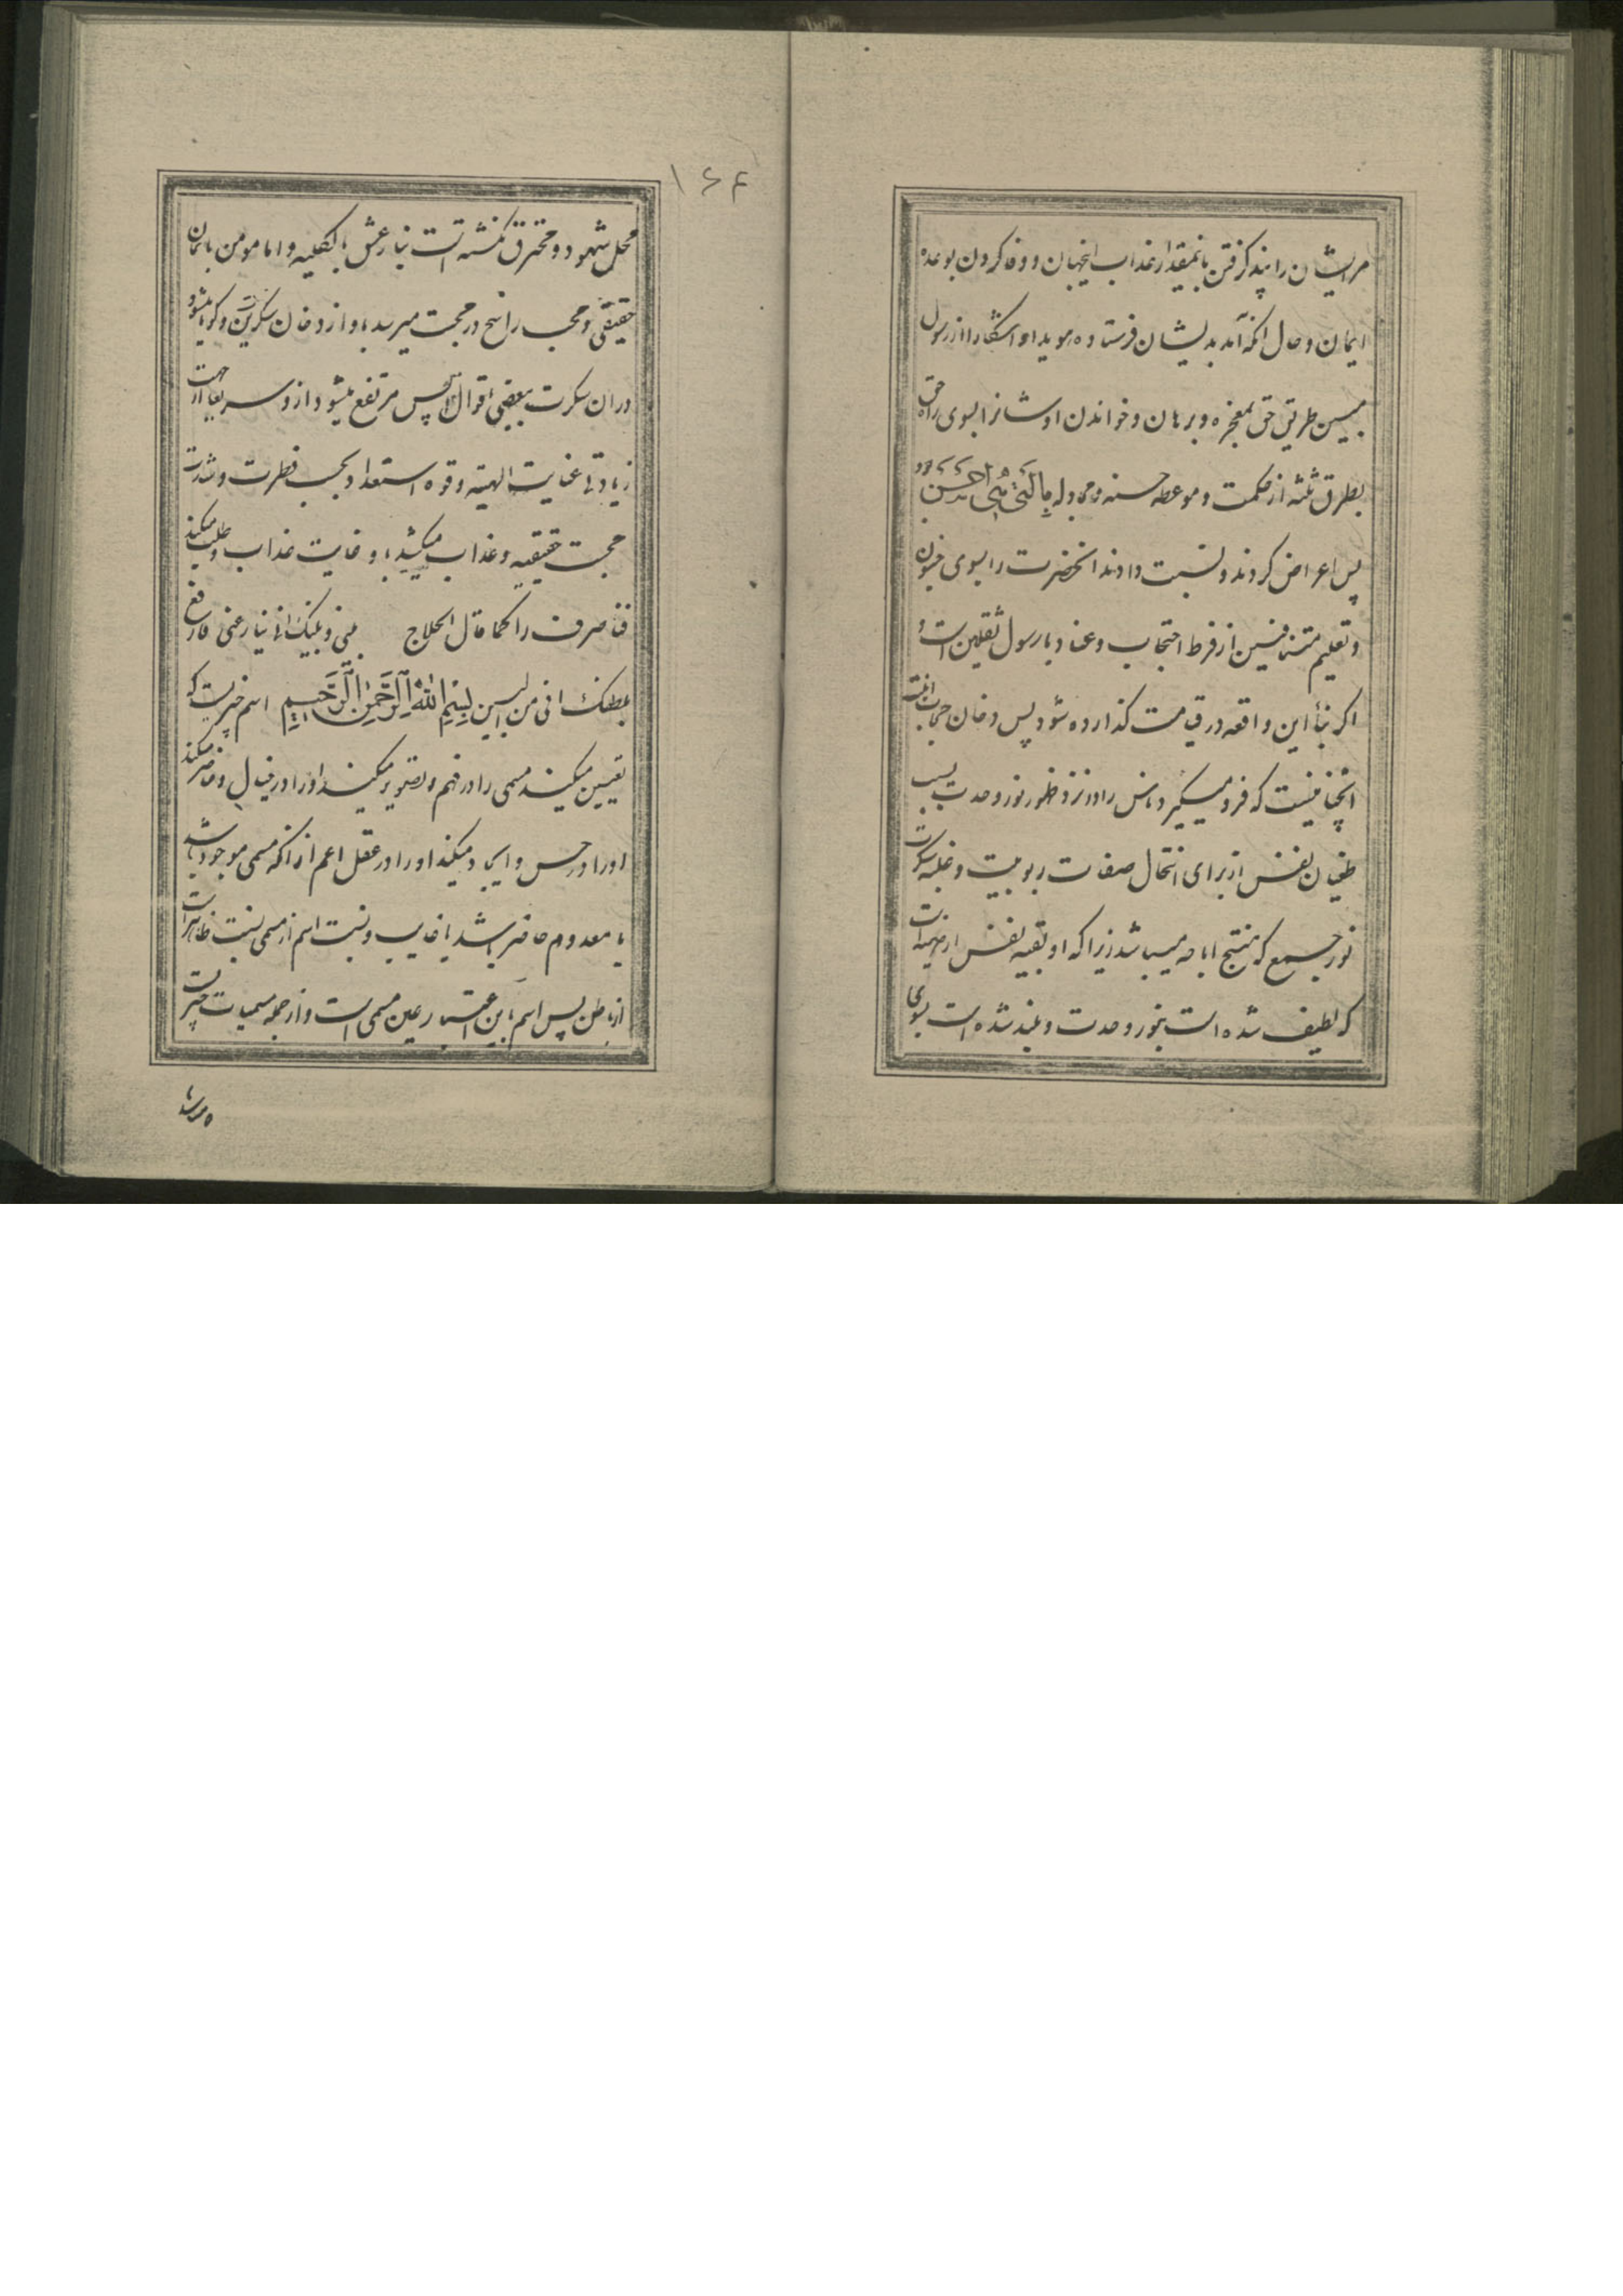 مر ایشان را پند گرفتن بانمقدار عذاب اینجهان و وفا کردن بوعده
ایمان و حال آنکه آمد بدیشان فرستاده هویدا و آشکارا از رسول
مبین طریق حق بمعجزه و برهان و خواندن اوشانرا بسوی راه حق
بطرق ثلثه از حکمت و موعظه حسنه و مجادله بِالَّتی هِیَ اَحْسَن بود
پس اعراض کردند و نسبت دادند آنحضرت را بسوی جنون
و تعلیم متنافسین از فرط احتجاب و عناد با رسول ثقلین است و
اکر بنأ این واقعه در قیامت گذارده شود پس دخان حجاب انیت
آنچنانیست که فرو میگیرد ناس را در نزد ظهور نور وحدت بسبب
طغیان نفس از برای انتحال صفات ربوبیت و غلبه سکرت
نور جمع که منتج اباحه میباشد زیرا که او بقیه نفس ارضیه است
که لطیف شده است بنور وحدت و بلند شده است بسوی
۱۶۴
محل شهود و محترق نکشته است بنار عشق بالکلیه و اما مومن بایمان
حقیقی و محب راسخ در محبت میرسد باو از دخان سکرتی و گویا میشود
در آن سکرت ببعضی اقوال پس مرتفع میشود از و سریعا از جهت
زیادتی عنایت الهیه و قوه استعداد بحسب فطرت و شدت
محبت حقیقیه و عذاب میکشد باو غایت عذاب و طلب میکند
فناء صرف را کما قال الحلاج بینی و بینک انی ینازعنی فارفع
بلطفک انی من البین بِسْمِ اللّٰهِ الرَّحْمٰنِ الرَّحیمِ اسم چیزیست که
تعیین میکند مسمی را در فهم و تصویر میکند او را در خیال و حاضر میکند
او را در حس و ایجاد میکند او را در عقل اعم از آنکه مسمی موجود باشد
یا معدوم حاضر باشد یا غایب و نسبت اسم از مسمی نسبت ظاهر است
از باطن پس اسم باین اعتبار عین مسمی است و از جمله مسمیات چیزیست